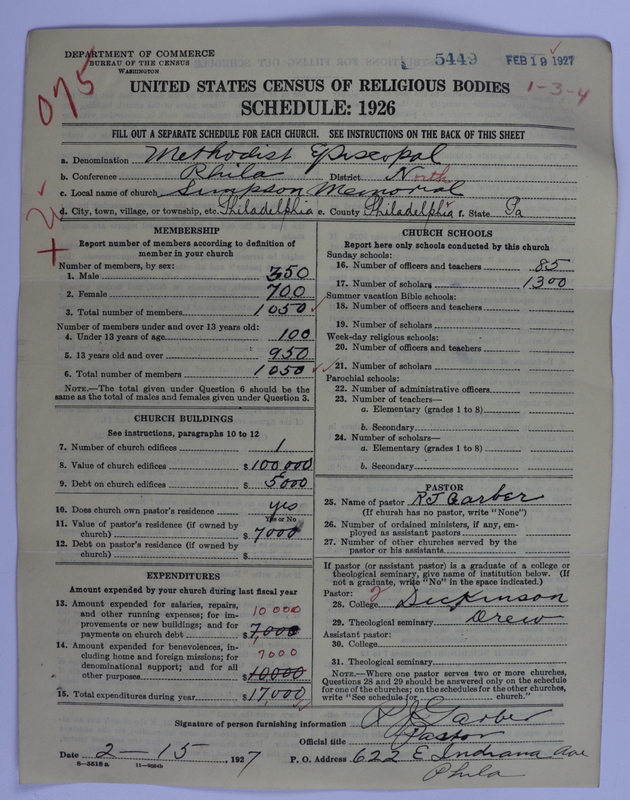 DEPARTMENT OF COMMERCE
BUREAU OF THE CENSUS
WASHINGTON
5449 FEB 19 1927
075
1-3-4
UNITED STATES CENSUS OF RELIGIOUS BODIES
SCHEDULE: 1926
FILL OUT A SEPARATE SCHEDULE FOR EACH CHURCH. SEE INSTRUCTIONS ON THE BACK OF THIS SHEET
a. Denomination Methodist Episcopal
b. Conference Phila District North
c. Local name of church Simpson Memorial
d. City, town, village, or township, etc. Philadelphia e. County Philadelphia f. State Pa
MEMBERSHIP
Report number of members according to definition of
member in your church
Number of members, by sex:
1. Male 350
2. Female 700
3. Total number of members 1050
Number of members under and over 13 years old:
4. Under 13 years of age 100
5. 13 years old and over 950
6. Total number of members 1050
NOTE.—The total given under Question 6 should be
same as the total of males and females given under Question 3.
CHURCH BUILDINGS
See instructions, paragraphs 10 to 12
7. Number of church edifices 1
8. Value of church edifices $100,000
9. Debt on church edifices $5000
10. Does church own pastor's residence yes
Yes or No
11. Value of pastor's residence (if owned by
church) $7000
12. Debt on pastor's residence (if owned by
church) $
EXPENDITURES
Amount expended by your church during last fiscal year
13. Amount expended for salaries, repairs,
and other running expenses; for im- 10000
provements or new buildings; and for
payments on church debt $7,000
14. Amount expended for benevolences, in-
cluding home and foreign missions; for 7000
denominational support; and for all
other purposes $10000
15. Total expenditures during year $17,000
CHURCH SCHOOLS
Report here only schools conducted by this church
Sunday schools:
16. Number of officers and teachers 85
17. Number of scholars 1300
Summer vacation Bible schools:
18. Number of officers and teachers
19. Number of scholars
Week-day religious schools:
20. Number of officers and teachers
21. Number of scholars
Parochial schools:
22. Number of administrative officers
23. Number of teachers—
a. Elementary (grades 1 to 8)
b. Secondary
24. Number of scholars—
a. Elementary (grades 1 to 8)
b. Secondary
PASTOR
25. Name of pastor R J Garber
(If church has no pastor, write "None")
26. Number of ordained ministers, if any, em-
ployed as assistant pastors
27. Number of other churches served by the
pastor or his assistants
If pastor (or assistant pastor) is a graduate of a college or
theological seminary, give name of institution below. (If
not a graduate, write "No" in the space indicated.)
Pastor: 2
28. College Dickinson
29. Theological seminary Drew
Assistant pastor:
30. College
31. Theological seminary
NOTE.—Where one pastor serves two or more churches,
Questions 28 and 29 should be answered only on the schedule
for one of the churches; on the schedules for the other churches,
write "See schedule for church."
Signature of person furnishing information R J Garber
Official title Pastor
Date 2-15, 1927 P. O. Address 622 E Indiana Ave
Phila
8-5518a 11-9064b